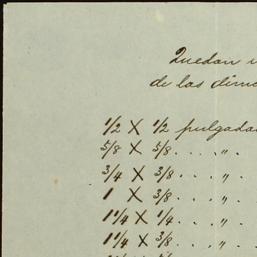 Quedan
de las dime
1/2 X 1/2 pulgada
5/8 X 5/8 . . . . " .
3/4 X 3/8 . . . . " .
1 X 3/8 . . . . " .
1 1/4 X 1/4 . . . . " .
1 1/4 X 3/8 . . . . " .